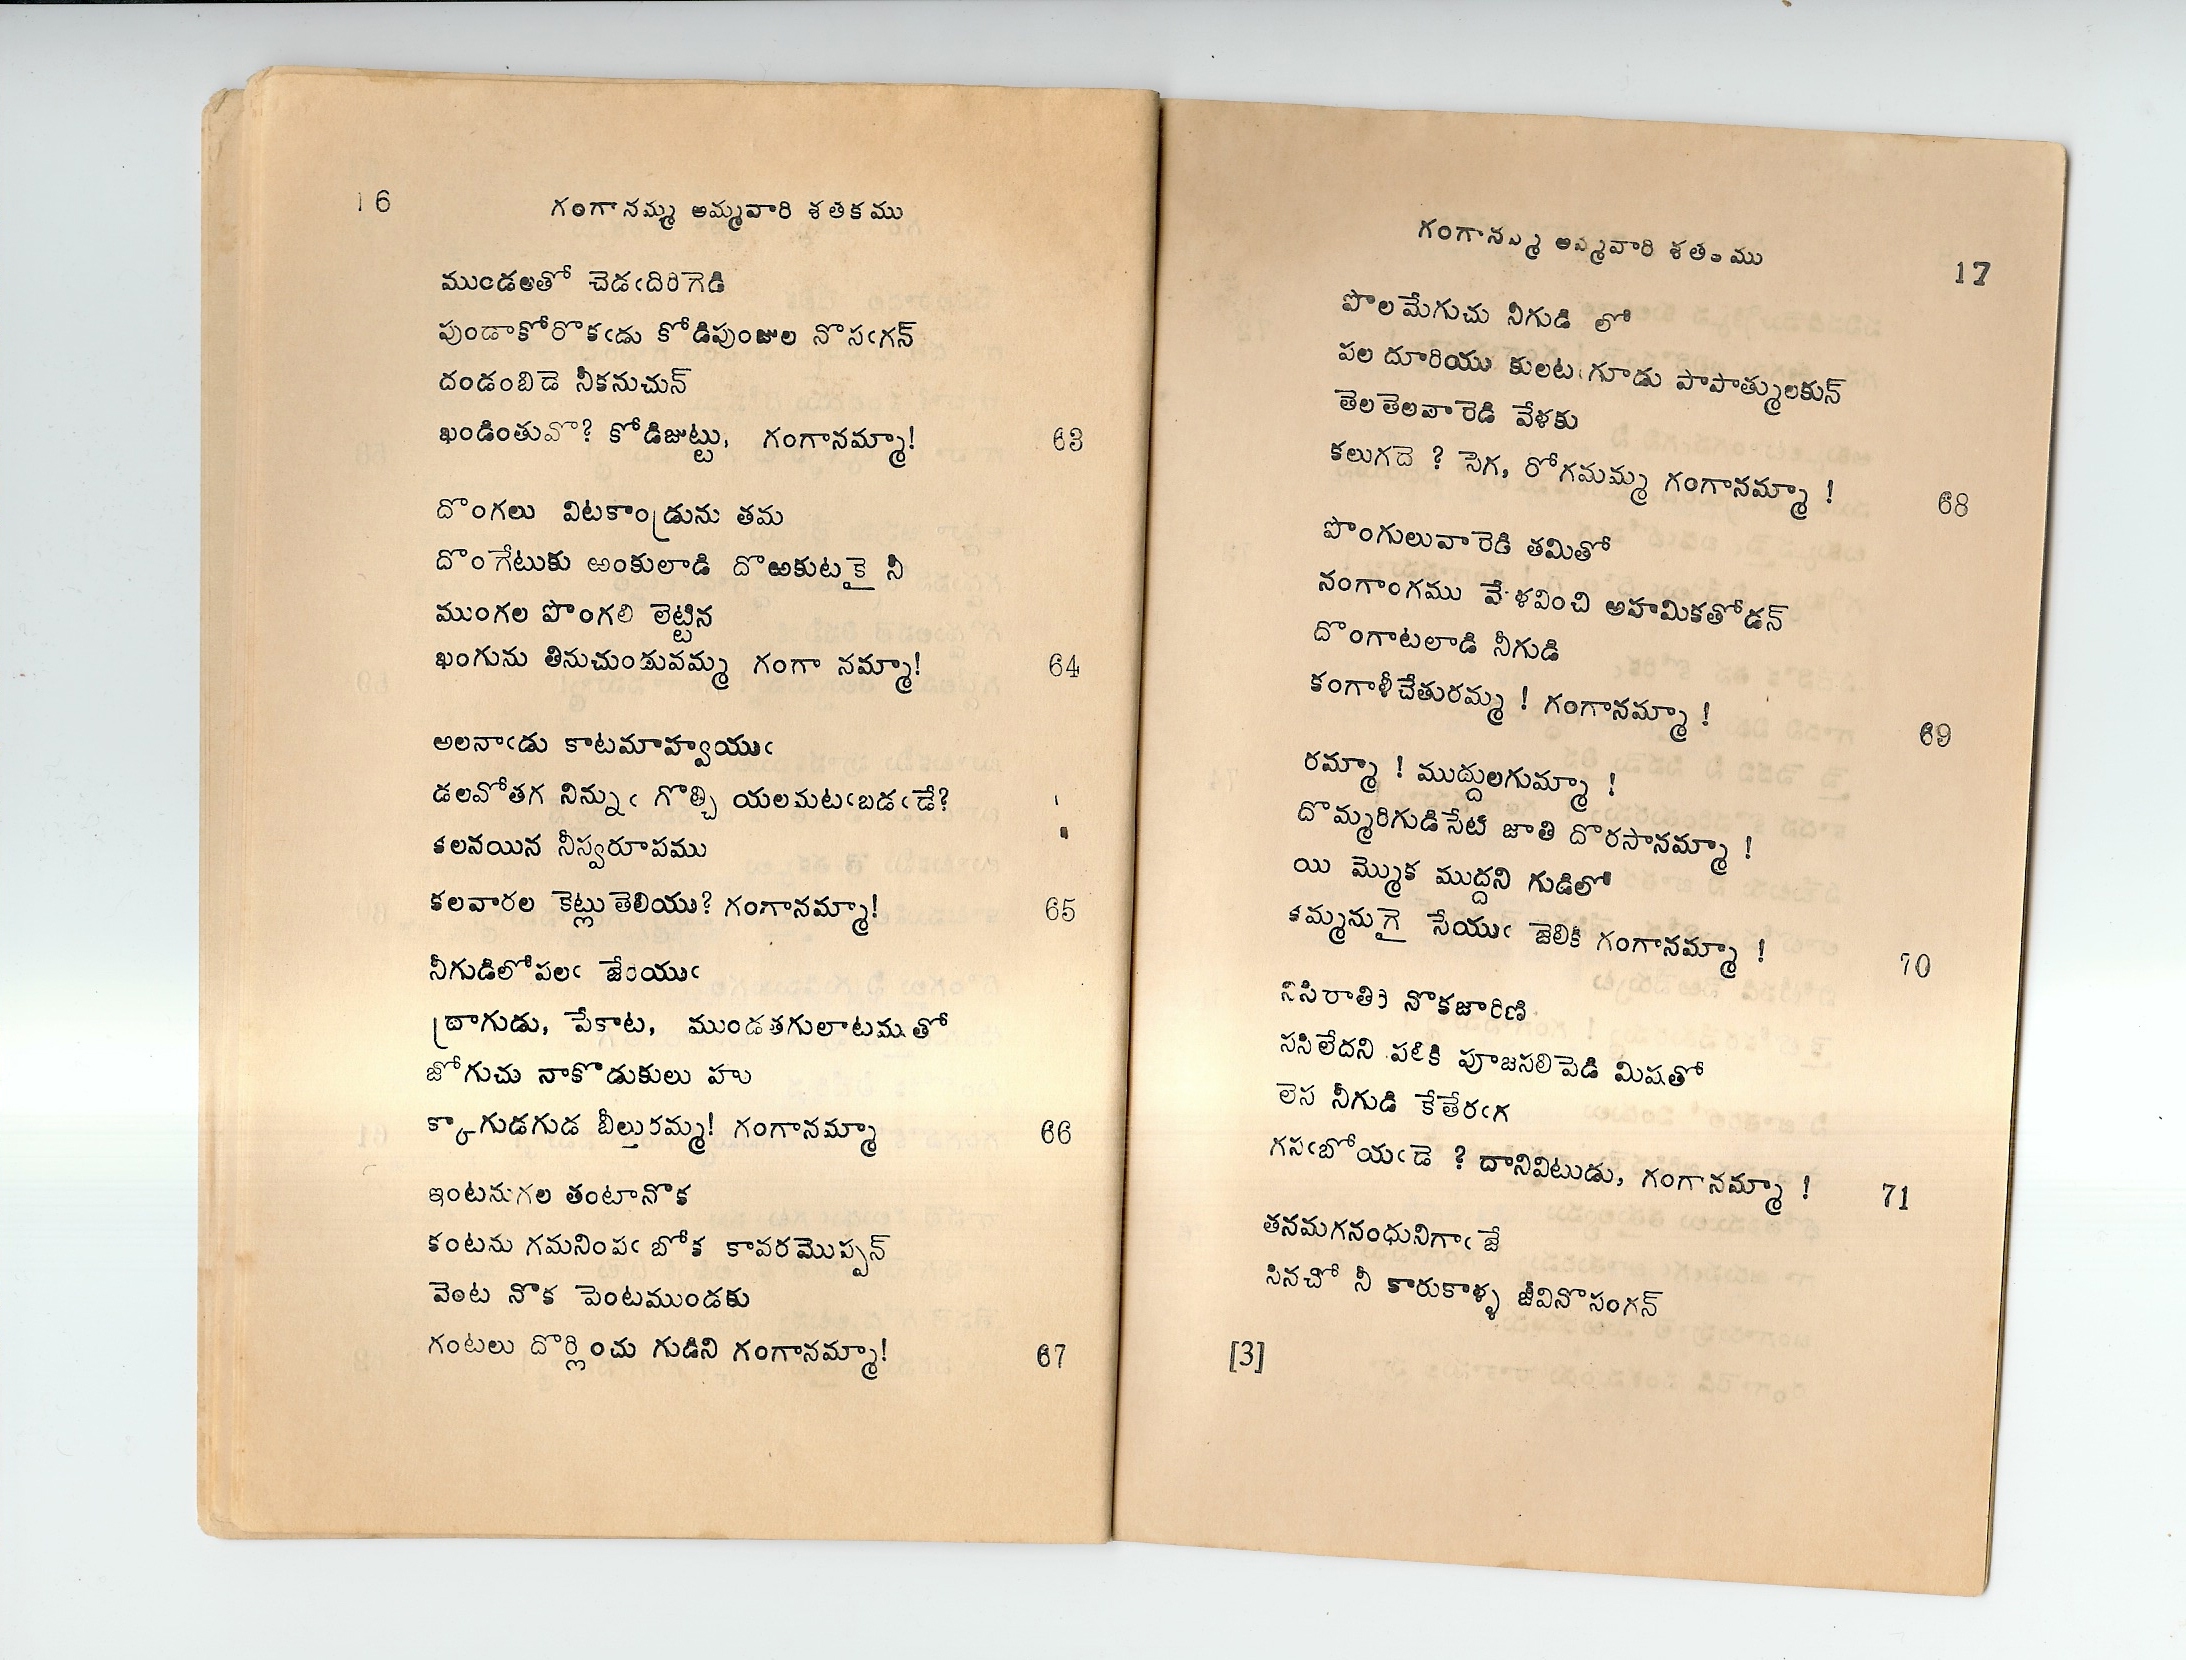 16
గంగానమ్మ అమ్మవారి శతకము
ముండలతో చెడఁదిరిగెడి
పుండాకోరొకఁడు కోడిపుంజుల నొసఁగన్
దండంబిడె నీకనుచున్
ఖండింతువొ? కోడిజుట్టు, గంగానమ్మా! 63
దొంగలు విటకాండ్రును తమ
దొంగేటుకు ఱంకులాడి దొఱకుటకై నీ
ముంగల పొంగలి లెట్టిన
ఖంగును తినుచుండువమ్మ గంగా నమ్మా! 64
అలనాఁడు కాటమాహ్వయుఁ
డలవోతగ నిన్నుఁ గొల్చి యలమటఁబడఁడే?
కలనయిన నీస్వరూపము
కలవారల కెట్లుతెలియు? గంగానమ్మా! 65
నీగుడిలోపలఁ జేరియుఁ
ద్రాగుడు, పేకాట, ముండతగులాటమతో
జోగుచు నాకొడుకులు హు
క్కాగుడగుడ బీల్తురమ్మ! గంగానమ్మా 66
ఇంటనుగల తంటానొక
కంటను గమనింపఁ బోక కావరమొప్పన్
వెంట నొక పెంటముండకు
గంటలు దొర్లించు గుడిని గంగానమ్మా! 67
గంగానమ్మ అమ్మవారి శతకము
17
పొలమేగుచు నీగుడి లో
పల దూరియు కులటఁగూడు పాపాత్ములకున్
తెలతెలవారెడి వేళకు
కలుగదె ? సెగ, రోగమమ్మ గంగానమ్మా ! 68
పొంగులువారెడి తమితో
నంగాంగము వేళవించి అహమికతోడన్
దొంగాటలాడి నీగుడి
కంగాళీచేతురమ్మ ! గంగానమ్మా ! 69
రమ్మా ! ముద్దులగుమ్మా !
దొమ్మరిగుడిసేటి జాతి దొరసానమ్మా !
యి మ్మొుక ముద్దని గుడిలో
కమ్మనుగై సేయుఁ జెలికి గంగానమ్మా ! 70
నిసిరాతిరి నొకజారిణి
ససిలేదని పలికి పూజసలిపెడి మిషతో
లెస నీగుడి కేతేరఁగ
గసఁబోయఁడె ? దానివిటుడు, గంగానమ్మా ! 71
తనమగనంధునిగాఁ జే
సినచో నీ కారుకాళ్ళ జీవినొసంగన్
[3]